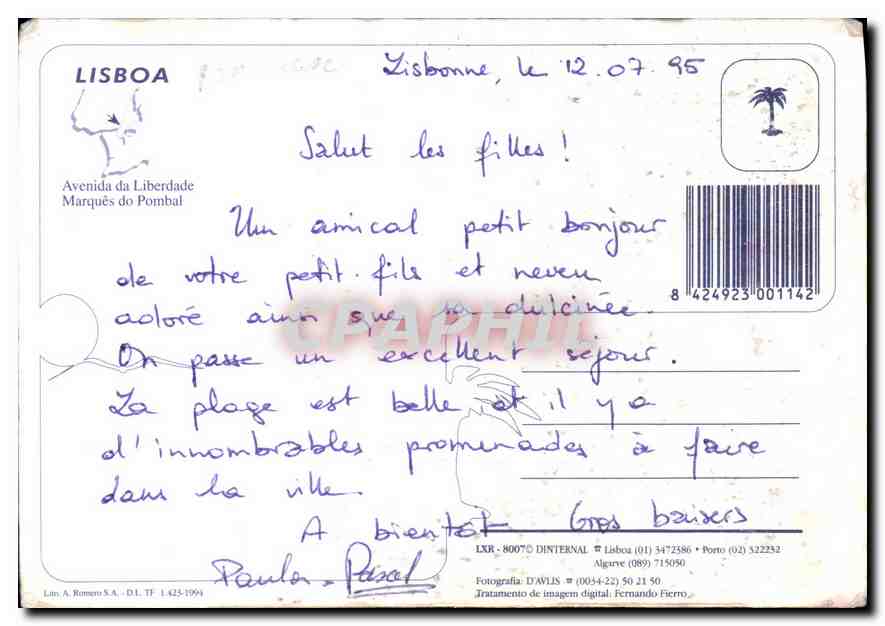 LISBOA
Avenida da Liberdade
Marquês do Pombal
Lisbonne, le 12.07.95
Salut les filles !
8 424923 001142
Un amical petit bonjour
de votre petit-fils et neveu
adoré ainsi que sa dulcinée.
CPAPHIL
On passe un excellent séjour.
La plage est belle et il y a
d'innombrables promenades à faire
dans la ville.
A bientôt Gros baisers
Paula - Pascal
LXR - 8007© DINTERNAL ☎ Lisboa (01) 3472386 • Porto (02) 322232
Algarve (089) 715050
Fotografia: D'AVLIS ☎ (0034-22) 50 21 50
Tratamento de imagem digital: Fernando Fierro
Lito. A. Romero S.A. - D.L. TF 1.423-1994